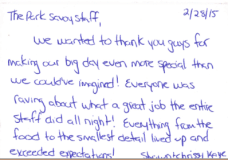 The Park Savoy staff, 2/28/15
We wanted to thank you guys for
making our big day even more special than
we could've imagined! Everyone was
raving about what a great job the entire
staff did all night! Everything from the
food to the smallest detail lived up and
exceeded expectations!